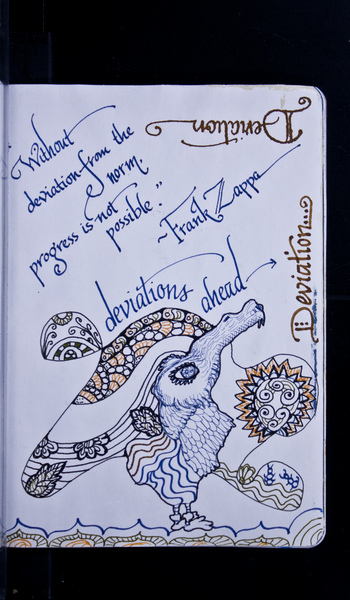 Deviation
"Without
deviation from the
norm,
progress is not
possible."
~Frank Zappa
deviations ahead →
Deviation....